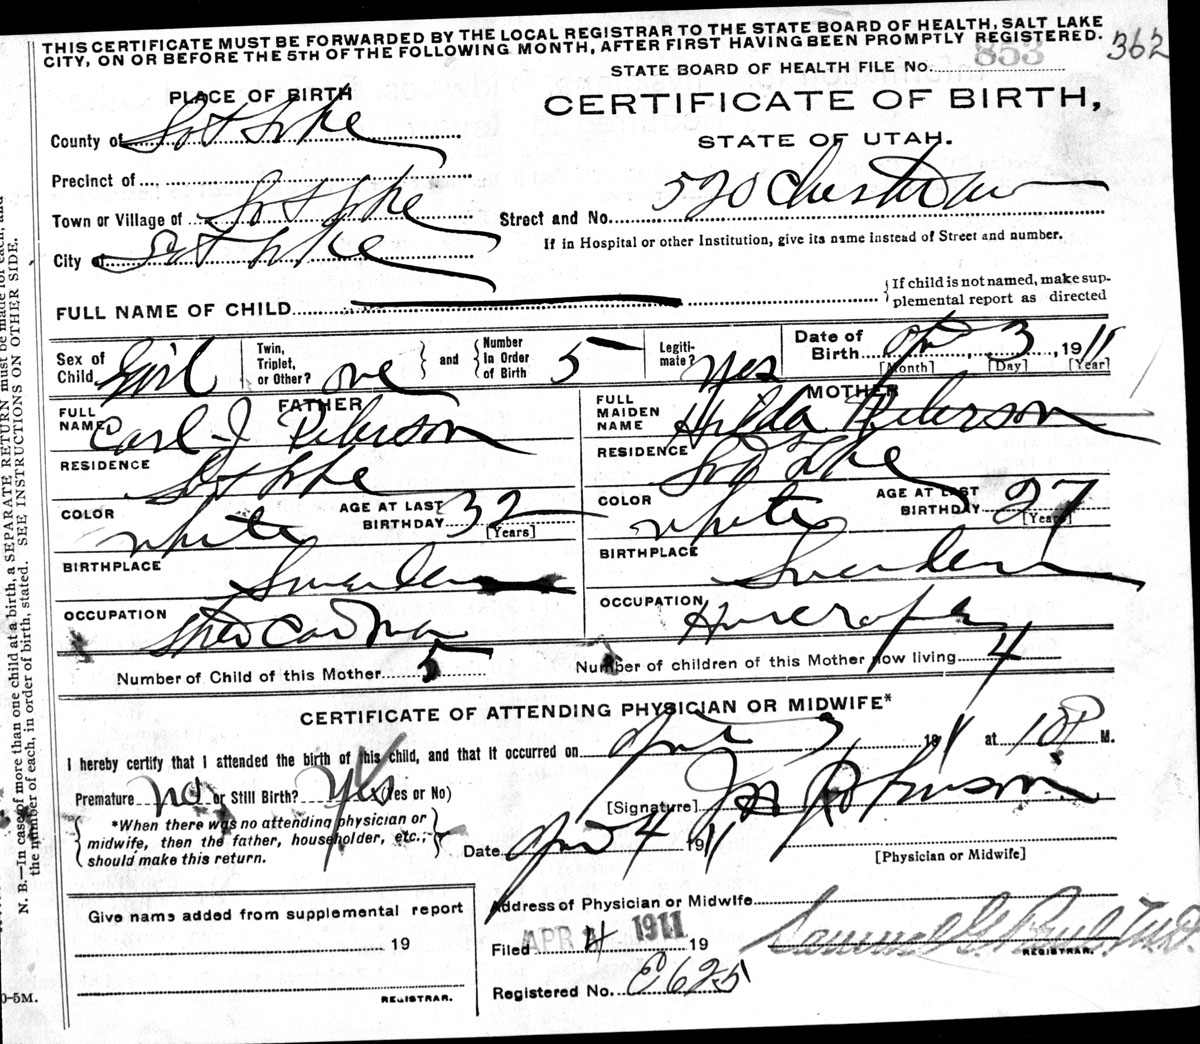 THIS CERTIFICATE MUST BE FORWARDED BY THE LOCAL REGISTRAR TO THE STATE BOARD OF HEALTH, SALT LAKE
CITY, ON OR BEFORE THE 5TH OF THE FOLLOWING MONTH, AFTER FIRST HAVING BEEN PROMPTLY REGISTERED.
362
STATE BOARD OF HEALTH FILE NO. 853
PLACE OF BIRTH
CERTIFICATE OF BIRTH,
STATE OF UTAH.
County of Salt Lake
Precinct of
Town or Village of Salt Lake
Street and No. 520
If in Hospital or other Institution, give its name instead of Street and number.
City of Salt Lake
FULL NAME OF CHILD
If child is not named, make sup-
plemental report as directed
Sex of Child Girl
Twin, Triplet, or Other? one
and
Number In Order of Birth 5
Legiti-mate? yes
Date of Birth 3, 1911
[Month] [Day] [Year]
FATHER
FULL NAME Carl J Peterson
RESIDENCE Salt Lake
COLOR white
AGE AT LAST BIRTHDAY 32
[Years]
BIRTHPLACE Sweden
OCCUPATION
MOTHER
FULL MAIDEN NAME Hilda Peterson
RESIDENCE Salt Lake
COLOR white
AGE AT LAST BIRTHDAY 27
[Years]
BIRTHPLACE Sweden
OCCUPATION
Number of Child of this Mother 5
Number of children of this Mother now living 4
CERTIFICATE OF ATTENDING PHYSICIAN OR MIDWIFE*
I hereby certify that I attended the birth of this child, and that it occurred on April 3 1911 at 10 P M.
Premature no or Still Birth? yes (Yes or No)
[Signature]
*When there was no attending physician or
midwife, then the father, householder, etc.,
should make this return.
Date April 4 1911
[Physician or Midwife]
Give name added from supplemental report
19
REGISTRAR.
Address of Physician or Midwife
Filed APR 4 1911 19
REGISTRAR.
Registered No. E625
N. B.—In case of more than one child at a birth, a SEPARATE RETURN must be made for each, and
the number of each, in order of birth, stated. SEE INSTRUCTIONS ON OTHER SIDE.
0-5M.